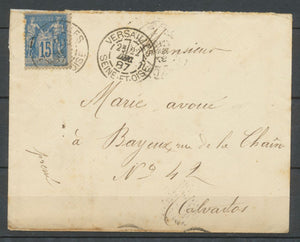 15
VERSAILLES
87
SEINE-ET-OISE
Monsieur
Marie avoué
à Bayeux, rue de la Chaîne
No 42
Calvados